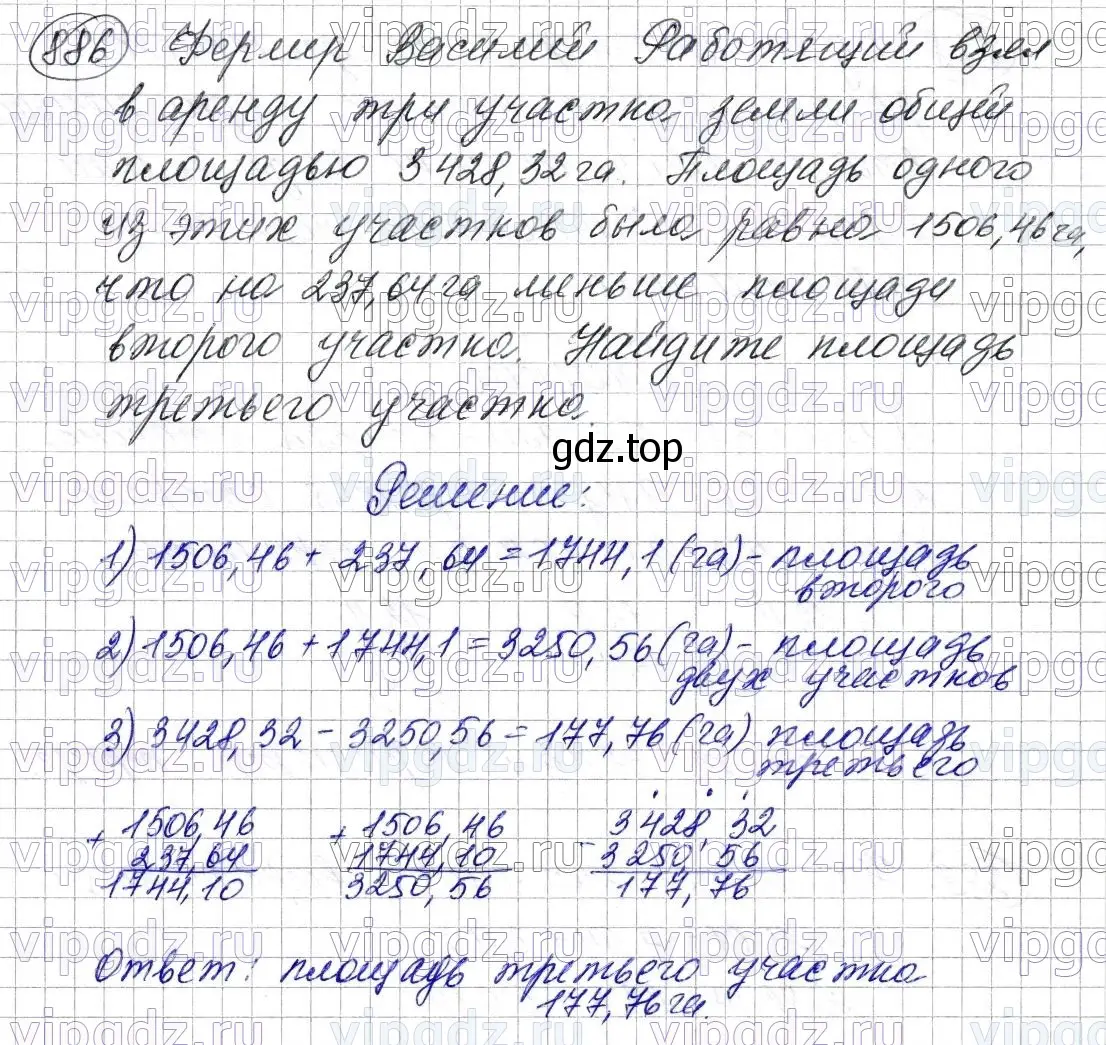 886 Фермер Василий Работящий взял
в аренду три участка земли общей
площадью 3428,32 га. Площадь одного
из этих участков была равна 1506,46 га,
что на 237,64 га меньше площади
второго участка. Найдите площадь
третьего участка.
gdz.top
Решение:
1) 1506,46 + 237,64 = 1744,1 (га) - площадь
второго
2) 1506,46 + 1744,1 = 3250,56 (га) - площадь
двух участков
3) 3428,32 - 3250,56 = 177,76 (га) площадь
третьего
+ 1506,46 + 1506,46 - 3428,32
237,64 1744,10 3250,56
1744,10 3250,56 177,76
Ответ: площадь третьего участка
177,76 га.
vipgdz.ru